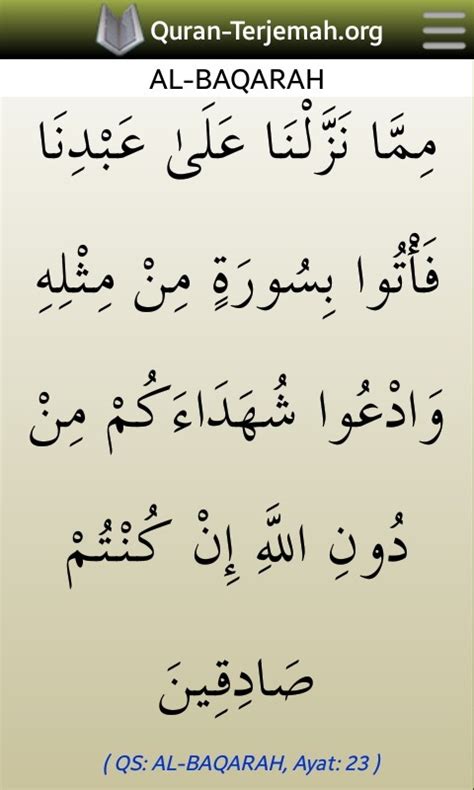 Quran-Terjemah.org
AL-BAQARAH
مِمَّا نَزَّلْنَا عَلَىٰ عَبْدِنَا
فَأْتُوا بِسُورَةٍ مِنْ مِثْلِهِ
وَادْعُوا شُهَدَاءَكُمْ مِنْ
دُونِ اللَّهِ إِنْ كُنْتُمْ
صَادِقِينَ
( QS: AL-BAQARAH, Ayat: 23 )